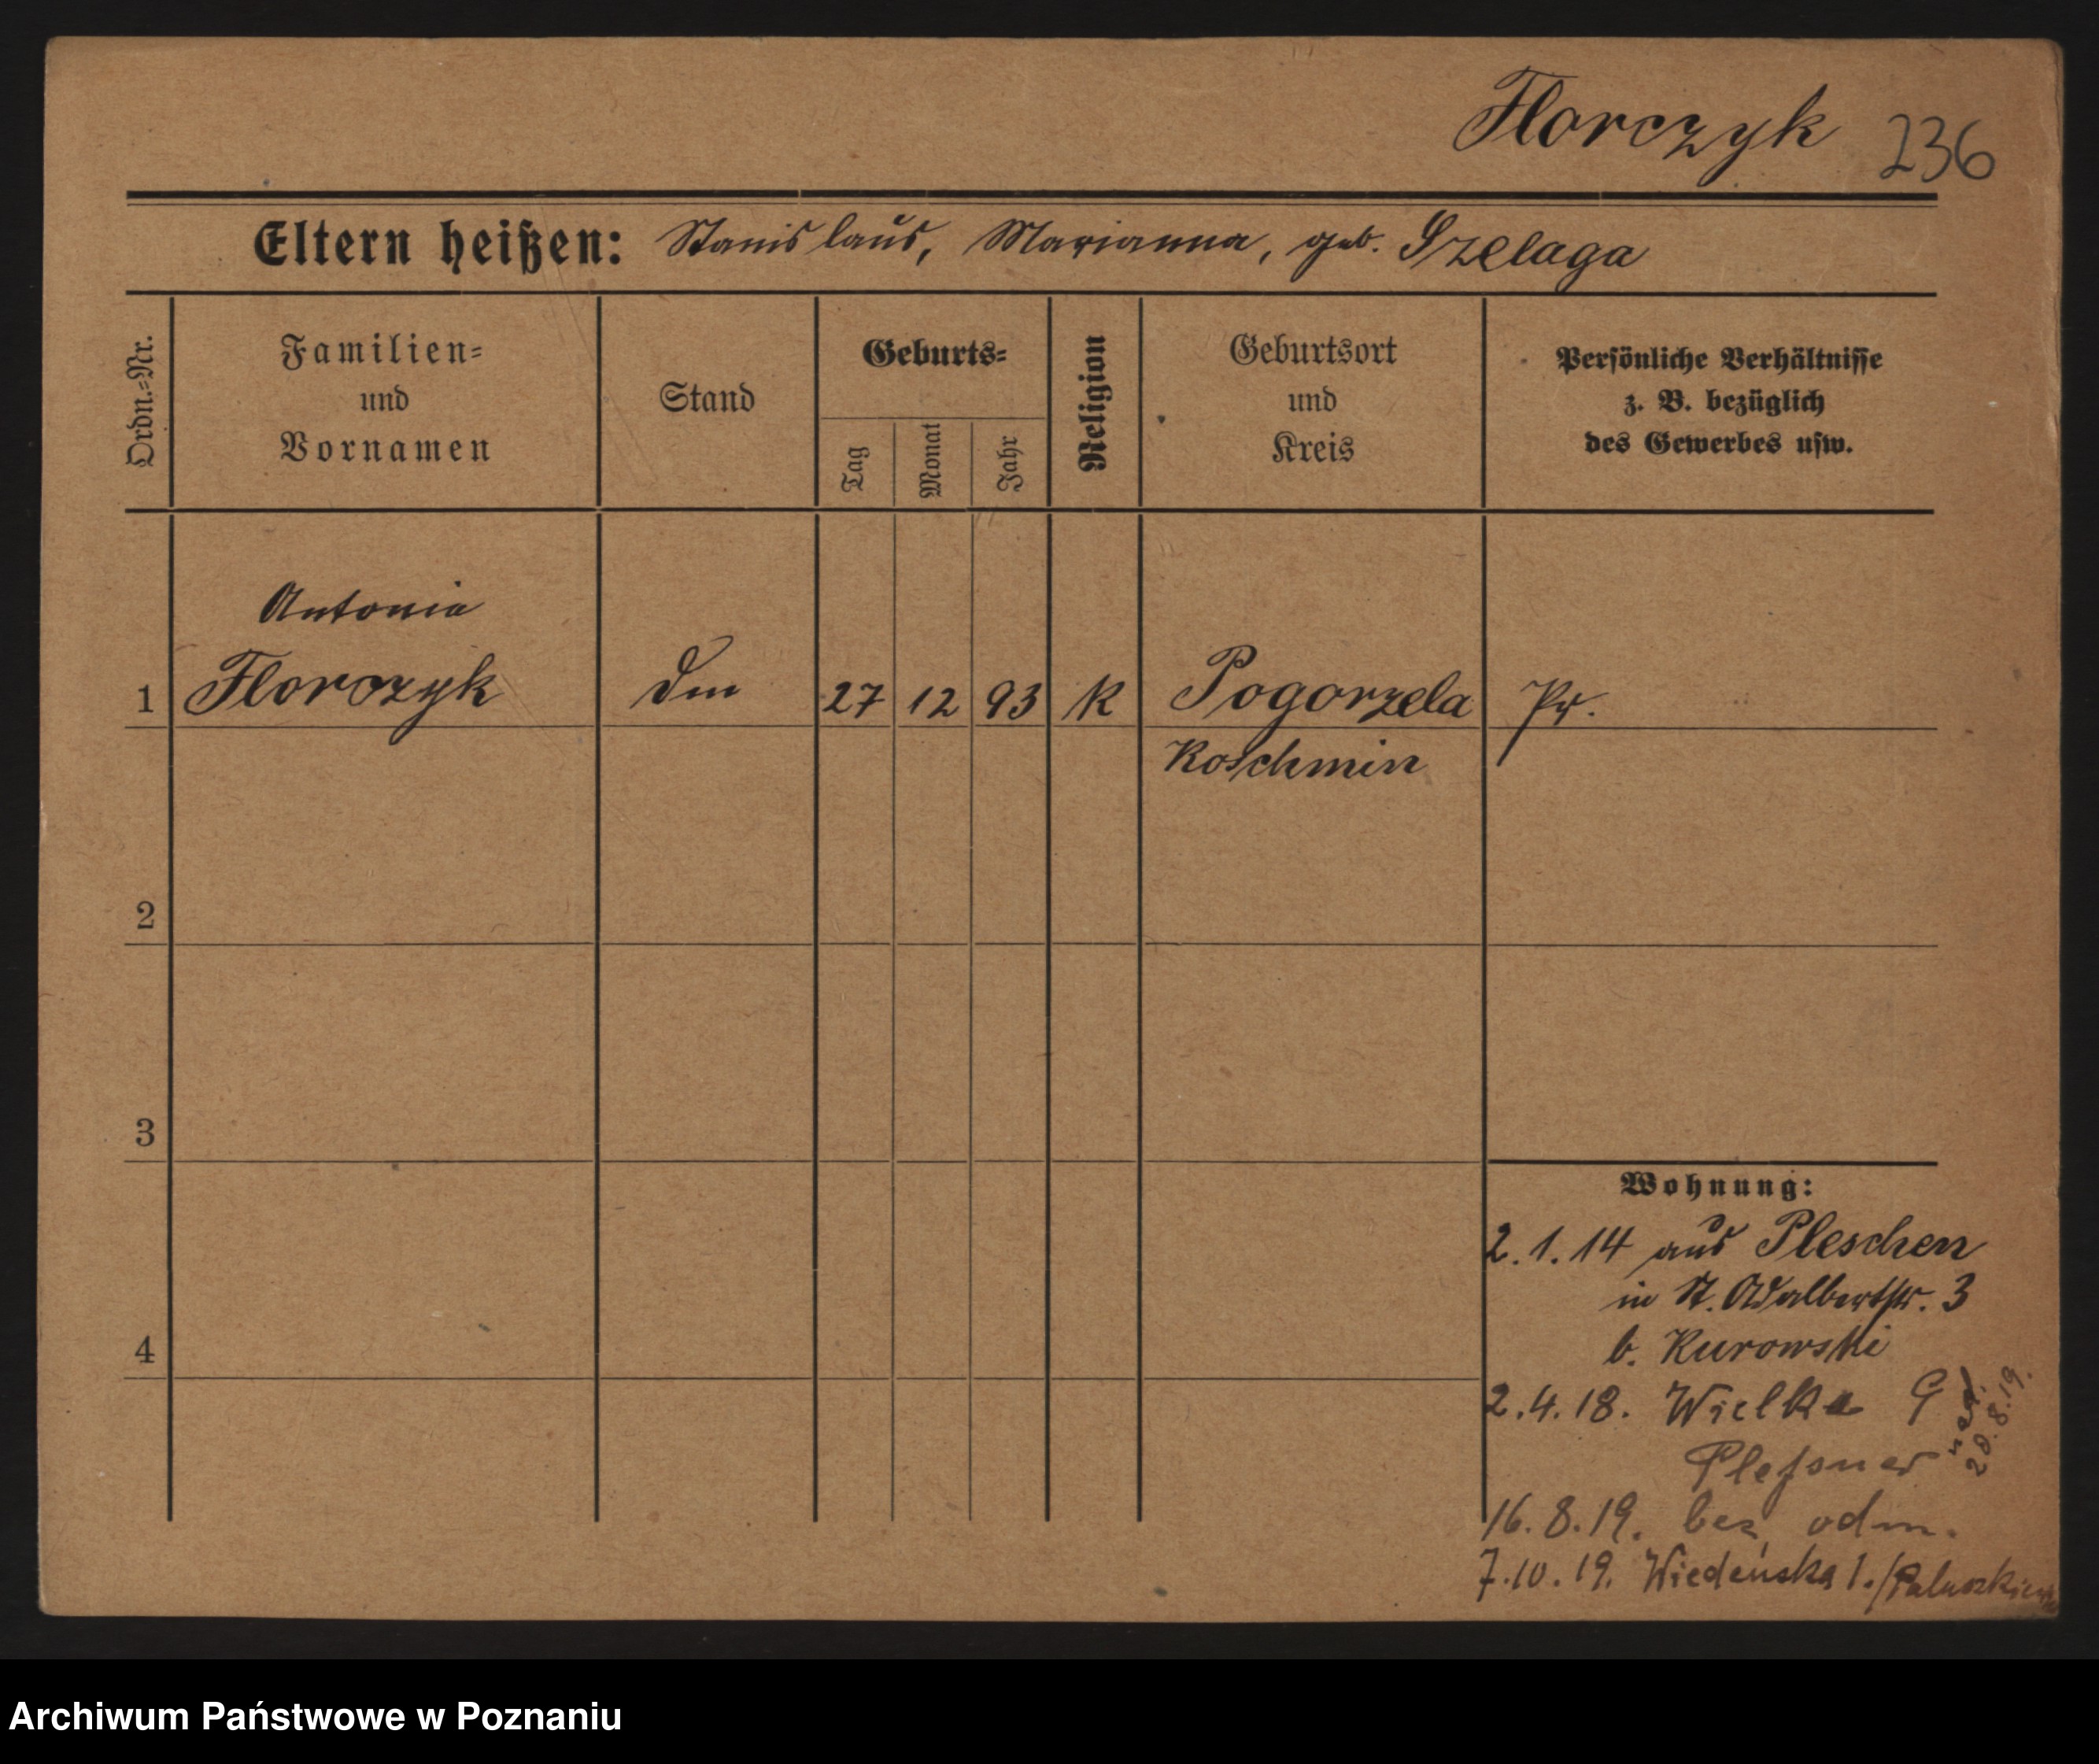 Florczyk 236
Eltern heißen: Stanislaus, Marianna, geb. Szelaga
Ordn.=Nr.
Familien=
und
Vornamen
Stand
Geburts=
Tag
Monat
Jahr
Religion
Geburtsort
und
Kreis
Persönliche Verhältnisse
z. B. bezüglich
des Gewerbes usw.
Antonia
1 Florczyk Dm 27 12 93 K Pogorzela Pr.
Koschmin
2
3
Wohnung:
2.1.14 aus Pleschen
in St. Adalbertstr. 3
b. Kurowski
4
2.4.18. Wielka 9
Plessner
20.8.19.
16.8.19. bez odm.
7.10.19. Wiedeńska 1. /Paluszkiewicz
Archiwum Państwowe w Poznaniu